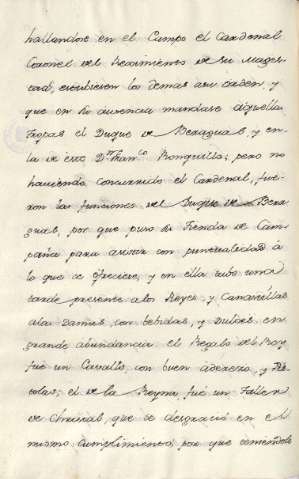 hallandose en el Campo el Cardenal
Coronel del Regimiento de su Mages-
tad, estubiesen los demas a su orden, y
que en su ausencia mandase aquellas
tropas el Duque de Beraguas, y en
la de este Dn. Franco. Ronquillo; pero no
haviendo concurrido el Cardenal, fue-
ron las funciones del Duque de Bera-
guas, por que puso su tienda de Cam-
paña para asistir con puntualidad à
lo que se ofreciese, y en ella tubo una
tarde presente a los Reyes, y Camarillas
a las Damas, con bebidas, y Dulces en
grande abundancia el Regalo del Rey
fué un Cavallo con buen aderezo, y Pis-
tolas; el de la Reyna fué un
de Christal, que se desgració en el
mismo cumplimiento, por que